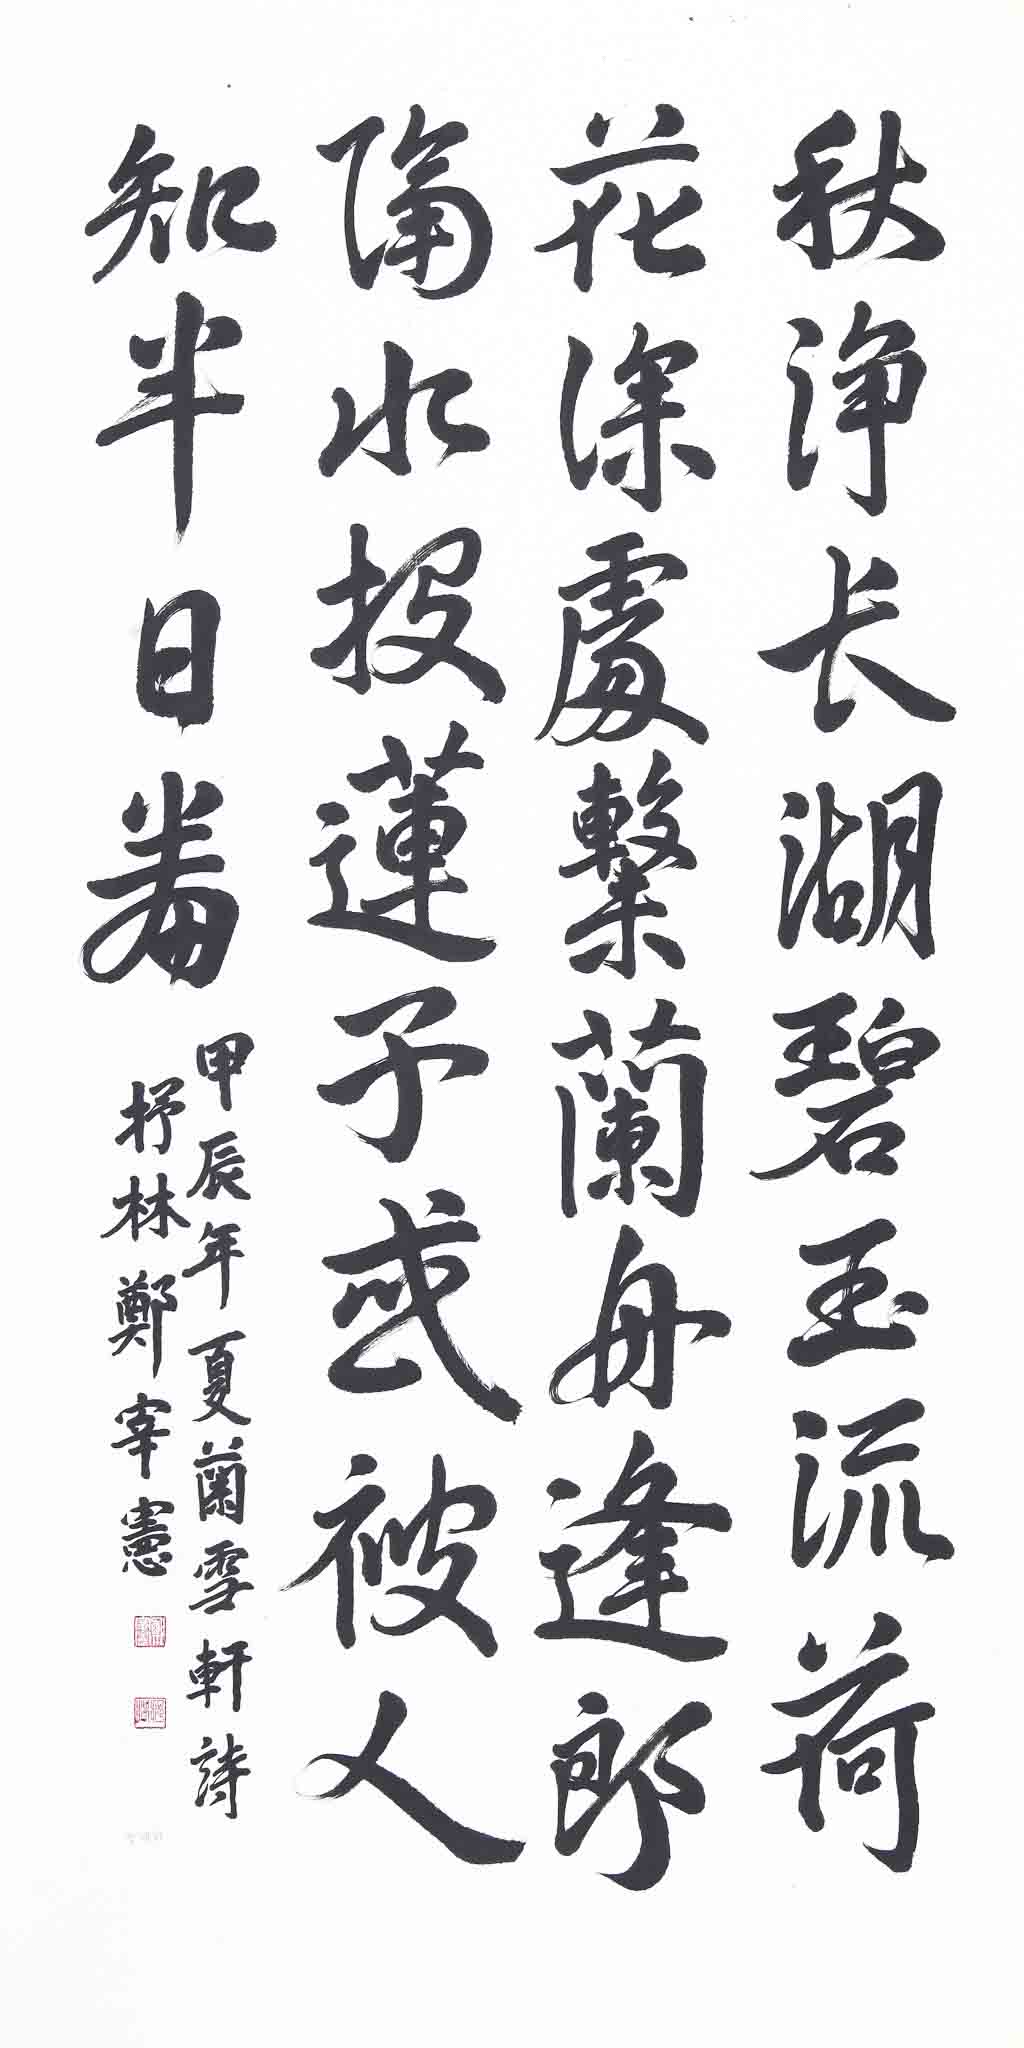 秋浄長湖碧玉流荷
花深處繫蘭舟逢郎
隔水投蓮子或被人
知半日羞
甲辰年夏蘭雪軒詩
抒林鄭宰憲